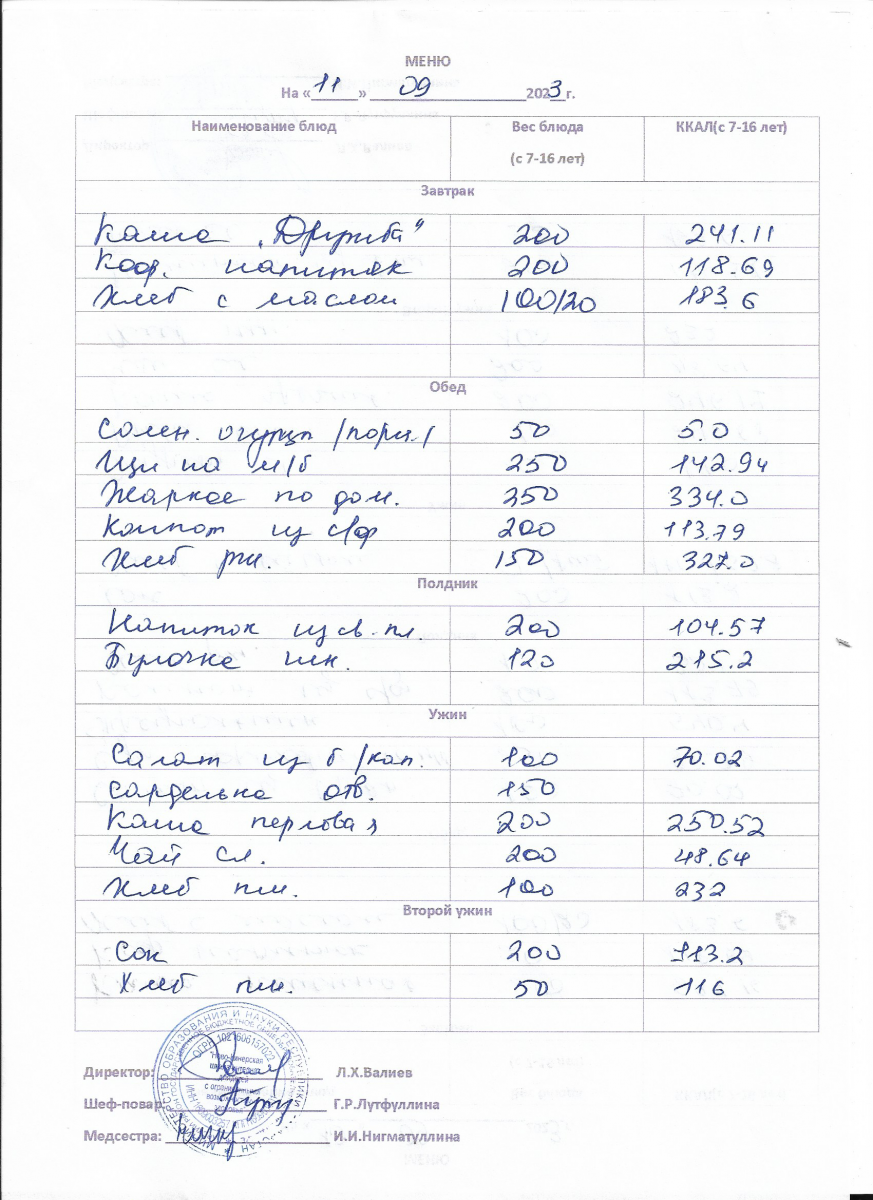 МЕНЮ
На «11» 09 2023 г.
Наименование блюд Вес блюда (с 7-16 лет) ККАЛ(с 7-16 лет)
Завтрак
Каша „Дружба" 200 241.11
Коф. напиток 200 118.69
Хлеб с маслом 100/20 183.6
Обед
Солен. огурцы /порц./ 50 5.0
Щи на м/б 250 142.94
Жаркое по дом. 250 334.0
Компот из с/ф 200 113.79
Хлеб рж. 150 327.0
Полдник
Напиток из св. пл. 200 104.57
Булочка шк. 120 215.2
Ужин
Салат из б/кап. 100 70.02
Сарделька отв. 150
Каша перловая 200 250.52
Чай сл. 200 48.64
Хлеб пш. 100 232
Второй ужин
Сок 200 113.2
Хлеб пш. 50 116
Директор: Л.Х.Валиев
Шеф-повар: Г.Р.Лутфуллина
Медсестра: И.И.Нигматуллина
ОГРН 1021606157022